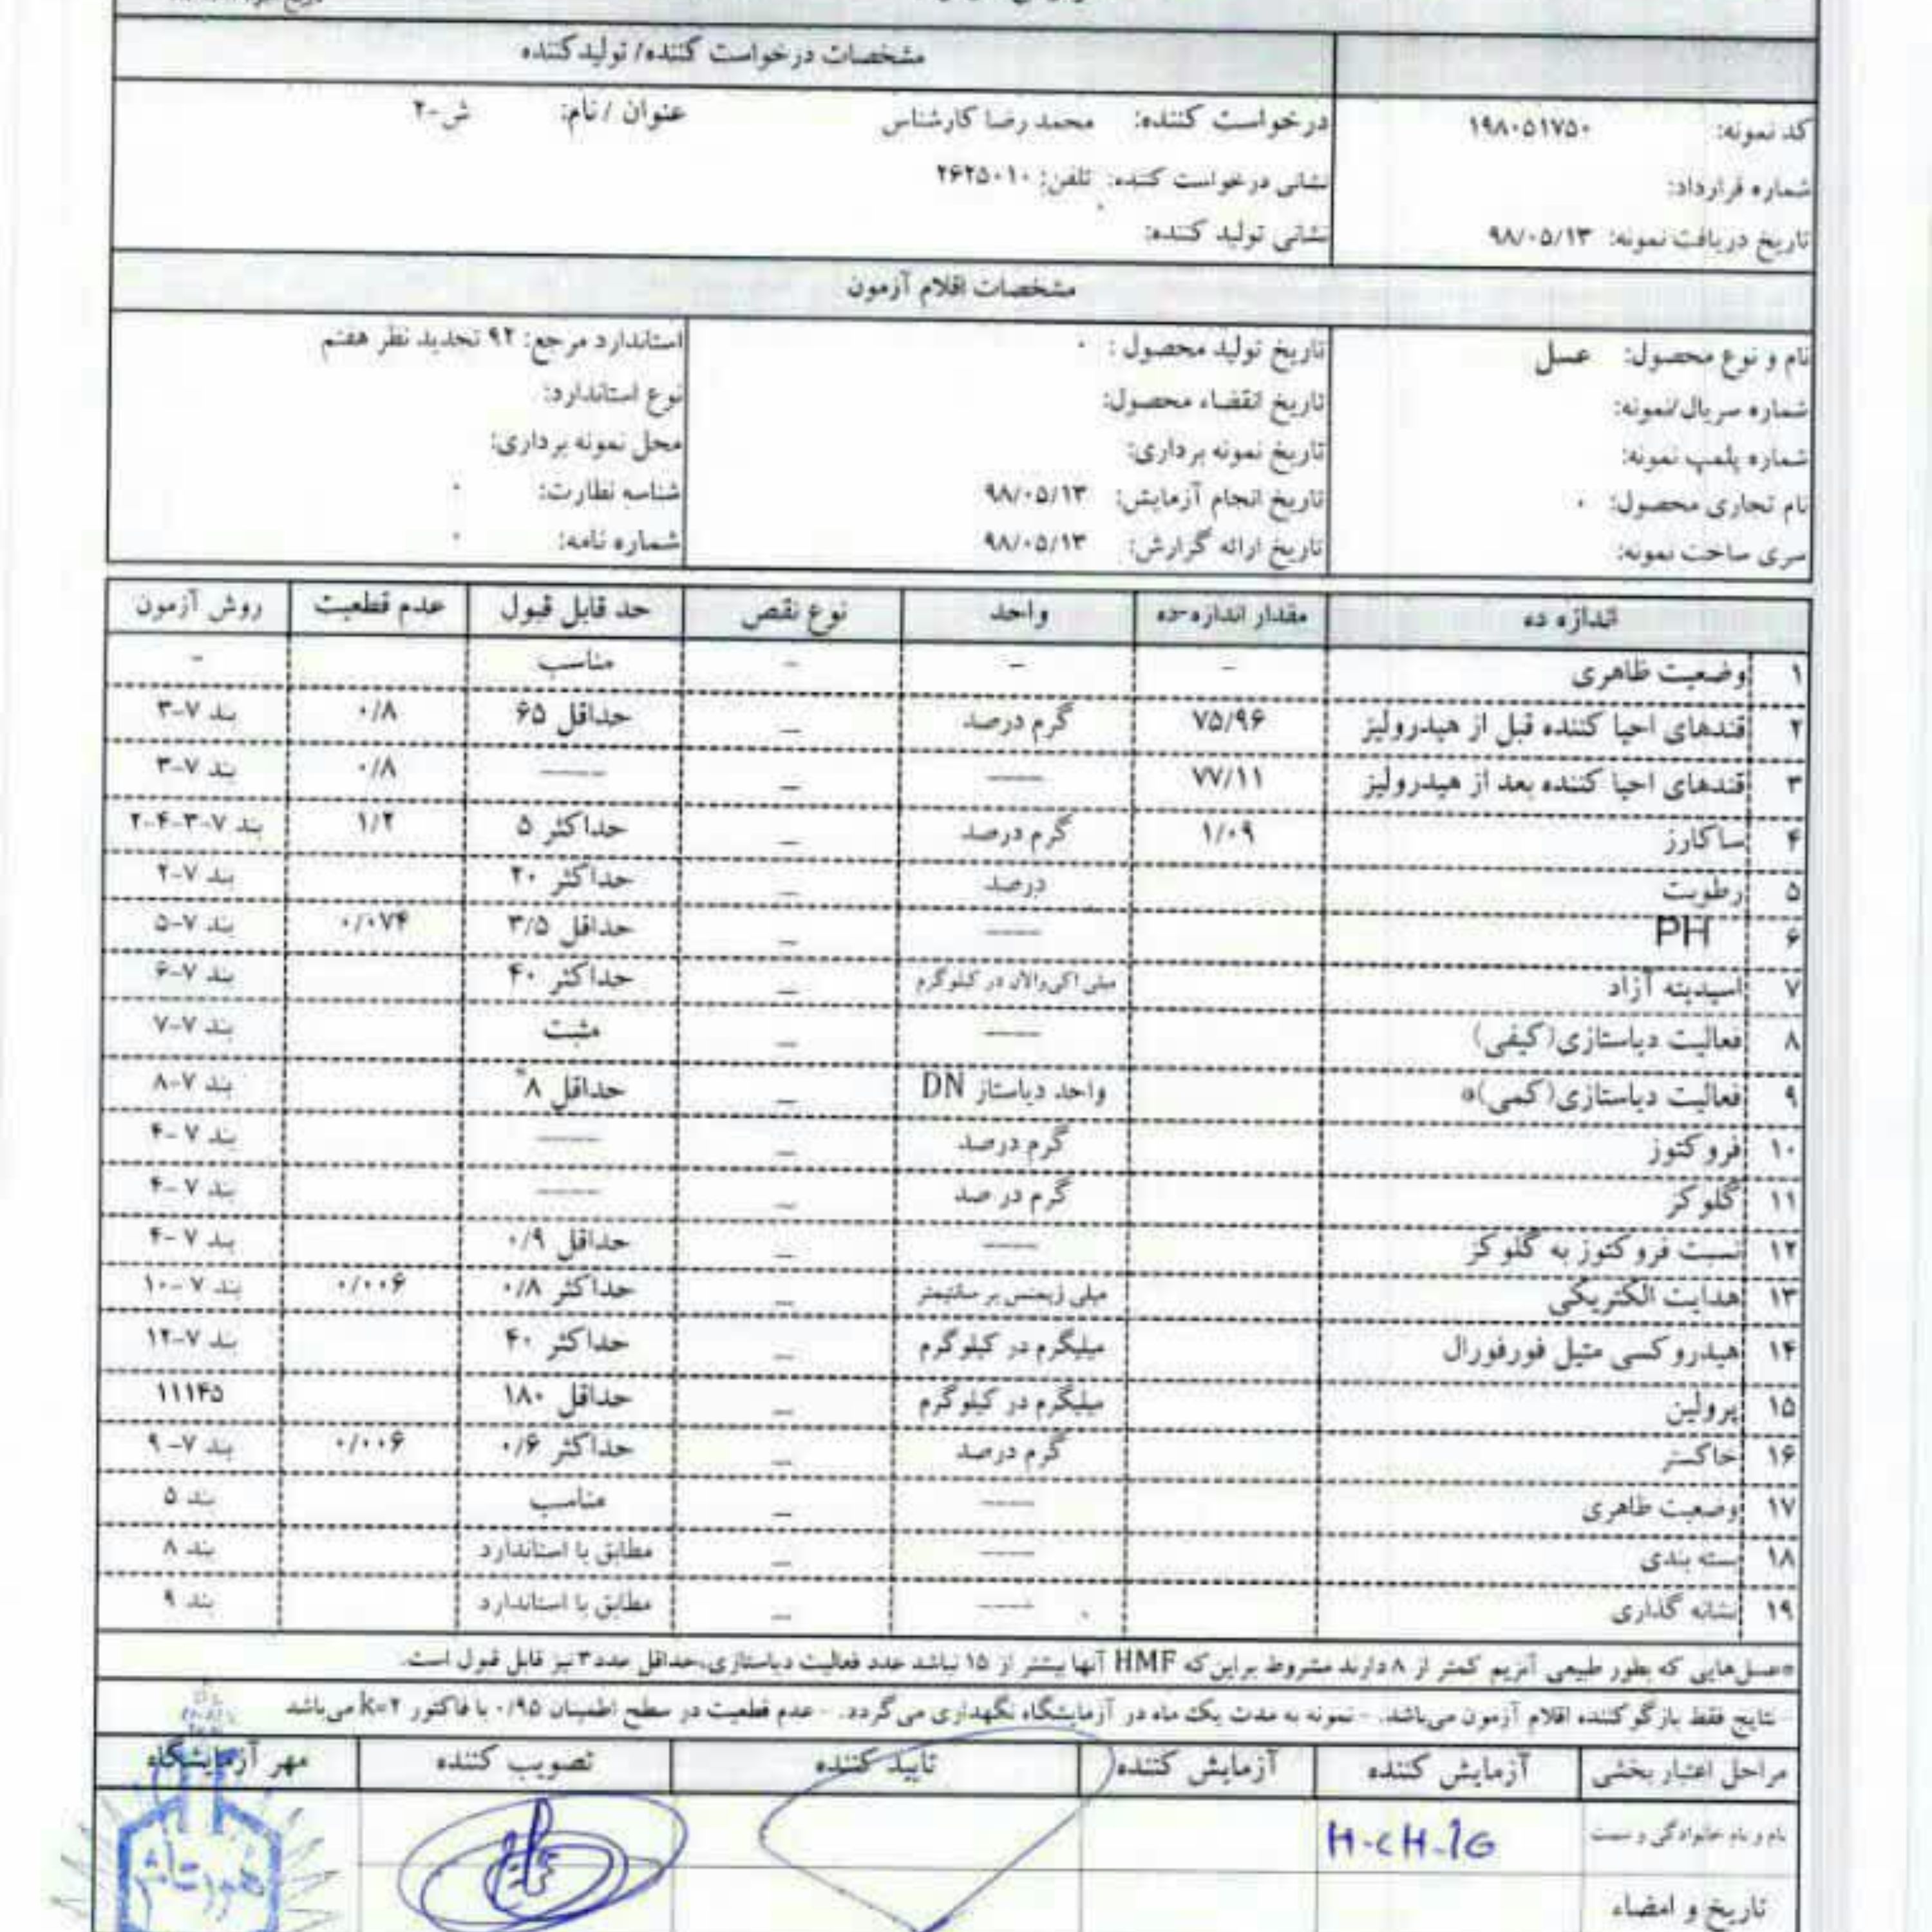 مشخصات درخواست کننده/ تولیدکننده
کد نمونه: ۱۹۸۰۵۱۷۵۰
شماره قرارداد:
تاریخ دریافت نمونه: ۹۸/۰۵/۱۳
درخواست کننده: محمد رضا کارشناس عنوان /نام: ش-۲
نشانی درخواست کننده: تلفن: ۲۶۲۵۰۱۰
نشانی تولید کننده:
مشخصات اقلام آزمون
نام و نوع محصول: عسل
شماره سریال/نمونه:
شماره پلمپ نمونه:
نام تجاری محصول: ۰
سری ساخت نمونه:
تاریخ تولید محصول : ۰
تاریخ انقضاء محصول:
تاریخ نمونه برداری:
تاریخ انجام آزمایش: ۹۸/۰۵/۱۳
تاریخ ارائه گزارش: ۹۸/۰۵/۱۳
استاندارد مرجع: ۹۲ تجدید نظر هفتم
نوع استاندارد:
محل نمونه برداری:
شناسه نظارت: ۰
شماره نامه: ۰
اندازه ده مقدار اندازه-ده واحد نوع نقص حد قابل قبول عدم قطعیت روش آزمون
۱ وضعیت ظاهری - - - مناسب -
۲ قندهای احیا کننده قبل از هیدرولیز ۷۵/۹۶ گرم درصد _ حداقل ۶۵ ۰/۸ بند ۷-۳
۳ قندهای احیا کننده بعد از هیدرولیز ۷۷/۱۱ ---- _ ---- ۰/۸ بند ۷-۳
۴ ساکارز ۱/۰۹ گرم درصد _ حداکثر ۵ ۱/۲ بند ۷-۳-۴-۲
۵ رطوبت درصد _ حداکثر ۲۰ بند ۷-۲
۶ PH ---- _ حداقل ۳/۵ ۰/۰۷۴ بند ۷-۵
۷ اسیدیته آزاد میلی اکی والان در کیلوگرم _ حداکثر ۴۰ بند ۷-۶
۸ فعالیت دیاستازی(کیفی) ---- _ مثبت بند ۷-۷
۹ فعالیت دیاستازی(کمی)* واحد دیاستاز DN _ حداقل ۸* بند ۷-۸
۱۰ فروکتوز گرم درصد _ ---- بند ۷-۴
۱۱ گلوکز گرم در صد _ ---- بند ۷-۴
۱۲ نسبت فروکتوز به گلوکز ---- _ حداقل ۰/۹ بند ۷-۴
۱۳ هدایت الکتریکی میلی زیمنس بر سانتیمتر _ حداکثر ۰/۸ ۰/۰۰۶ بند ۷-۱۰
۱۴ هیدروکسی متیل فورفورال میلیگرم در کیلوگرم _ حداکثر ۴۰ بند ۷-۱۲
۱۵ پرولین میلیگرم در کیلوگرم _ حداقل ۱۸۰ ۱۱۱۴۵
۱۶ خاکستر گرم درصد _ حداکثر ۰/۶ ۰/۰۰۶ بند ۷-۹
۱۷ وضعیت ظاهری ---- _ مناسب بند ۵
۱۸ بسته بندی ---- _ مطابق با استاندارد بند ۸
۱۹ نشانه گذاری ---- _ مطابق با استاندارد بند ۹
*عسل‌هایی که بطور طبیعی آنزیم کمتر از ۸ دارند مشروط براین‌که HMF آنها بیشتر از ۱۵ نباشد عدد فعالیت دیاستازی،حداقل عدد ۳ نیز قابل قبول است.
نتایج فقط بازگو کننده اقلام آزمون می‌باشد. - نمونه به مدت یک ماه در آزمایشگاه نگهداری می‌گردد. - عدم قطعیت در سطح اطمینان ۰/۹۵ با فاکتور k=۲ می‌باشد
مراحل اعتبار بخشی آزمایش کننده آزمایش کننده تایید کننده تصویب کننده مهر آزمایشگاه
نام و نام خانوادگی و سمت
تاریخ و امضاء